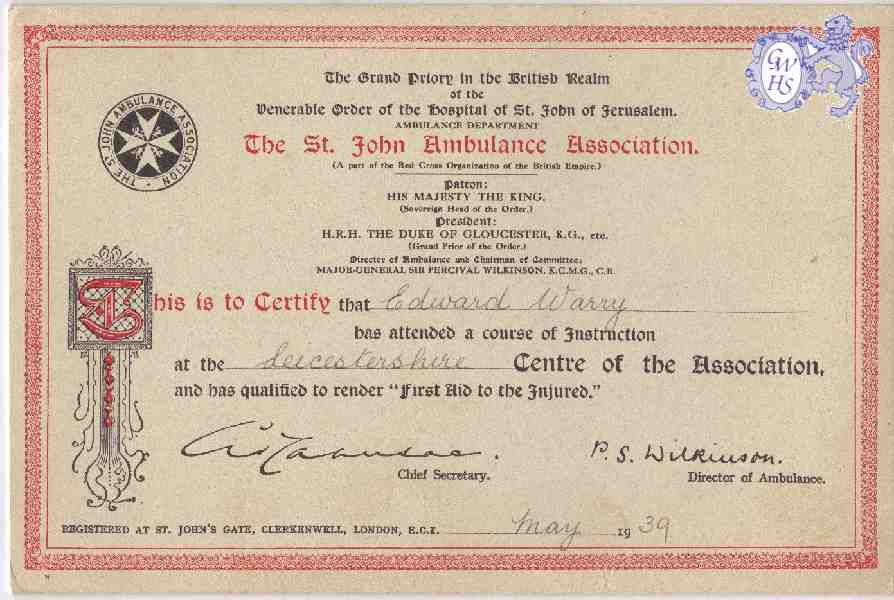 The Grand Priory in the British Realm
of the
Venerable Order of the Hospital of St. John of Jerusalem.
AMBULANCE DEPARTMENT
The St. John Ambulance Association.
(A part of the Red Cross Organization of the British Empire.)
Patron:
HIS MAJESTY THE KING.
(Sovereign Head of the Order.)
President:
H.R.H. THE DUKE OF GLOUCESTER, K.G., etc.
(Grand Prior of the Order.)
Director of Ambulance and Chairman of Committee:
MAJOR-GENERAL SIR PERCIVAL WILKINSON, K.C.M.G., C.B.
THE ST JOHN AMBULANCE ASSOCIATION
GWHS
This is to Certify that Edward Warry
has attended a course of Instruction
at the Leicestershire Centre of the Association,
and has qualified to render "First Aid to the Injured."
P. S. Wilkinson.
Chief Secretary.
Director of Ambulance.
REGISTERED AT ST. JOHN'S GATE, CLERKENWELL, LONDON, E.C.1. May 1939